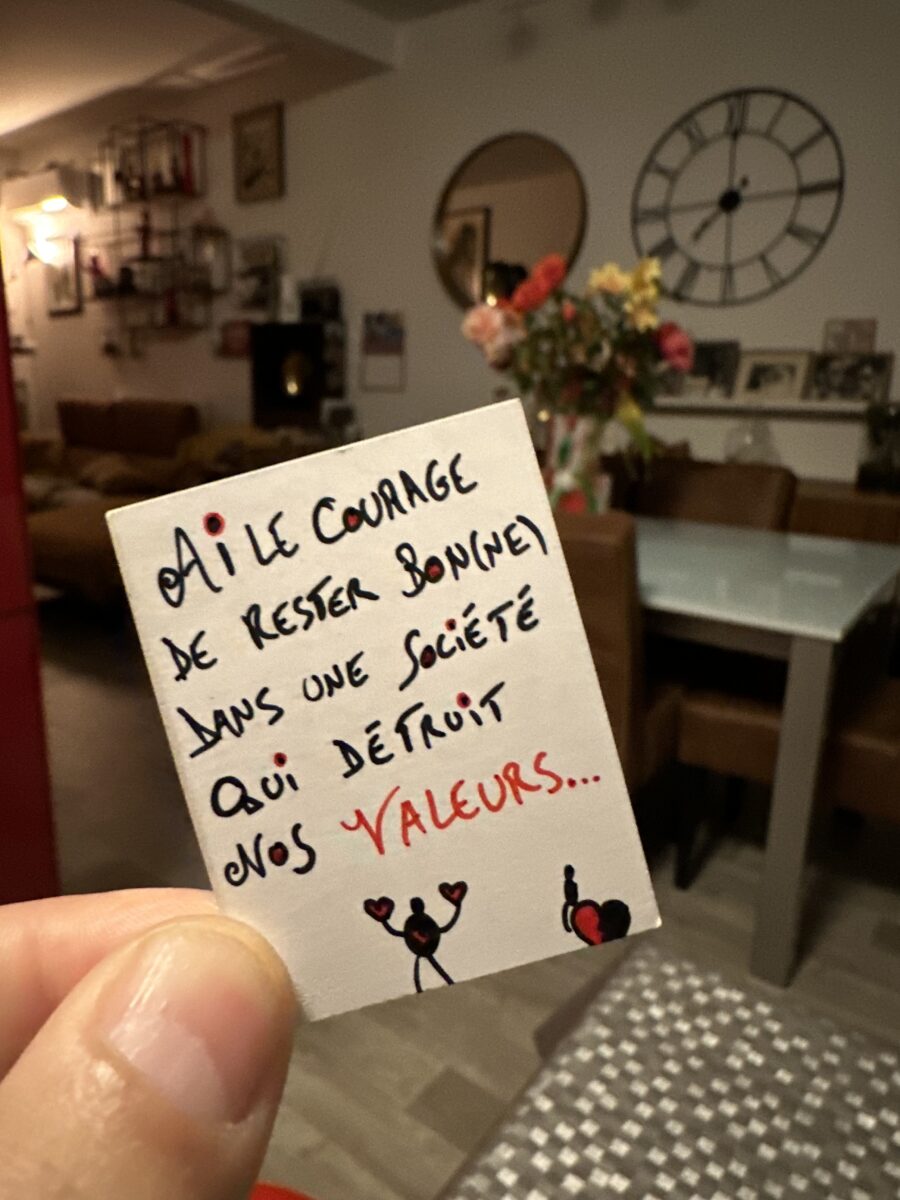 Ai LE COURAGE
DE RESTER BON(NE)
DANS UNE SOCiÉTÉ
QUi DÉTRUiT
NOS VALEURS...